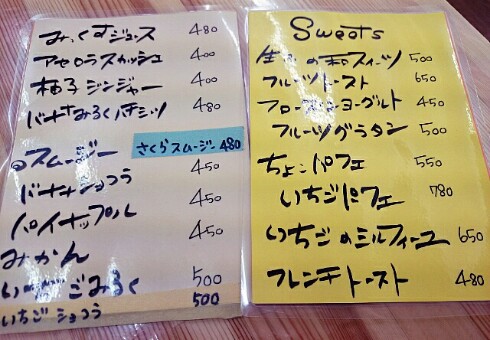 みっくすジュース 480
アセロラスカッシュ 400
柚子ジンジャー 400
バナナみるくハチミツ 480
のスムージー さくらスムージー 480
バナナショコラ 450
パイナップル 450
みかん 450
いちごみるく 500
いちごショコラ 500
Sweets
の和スイーツ 500
フルーツトースト 650
フローズンヨーグルト 450
フルーツグラタン 500
ちょこパフェ 550
いちごパフェ 780
いちごのミルフィーユ 650
フレンチトースト 480